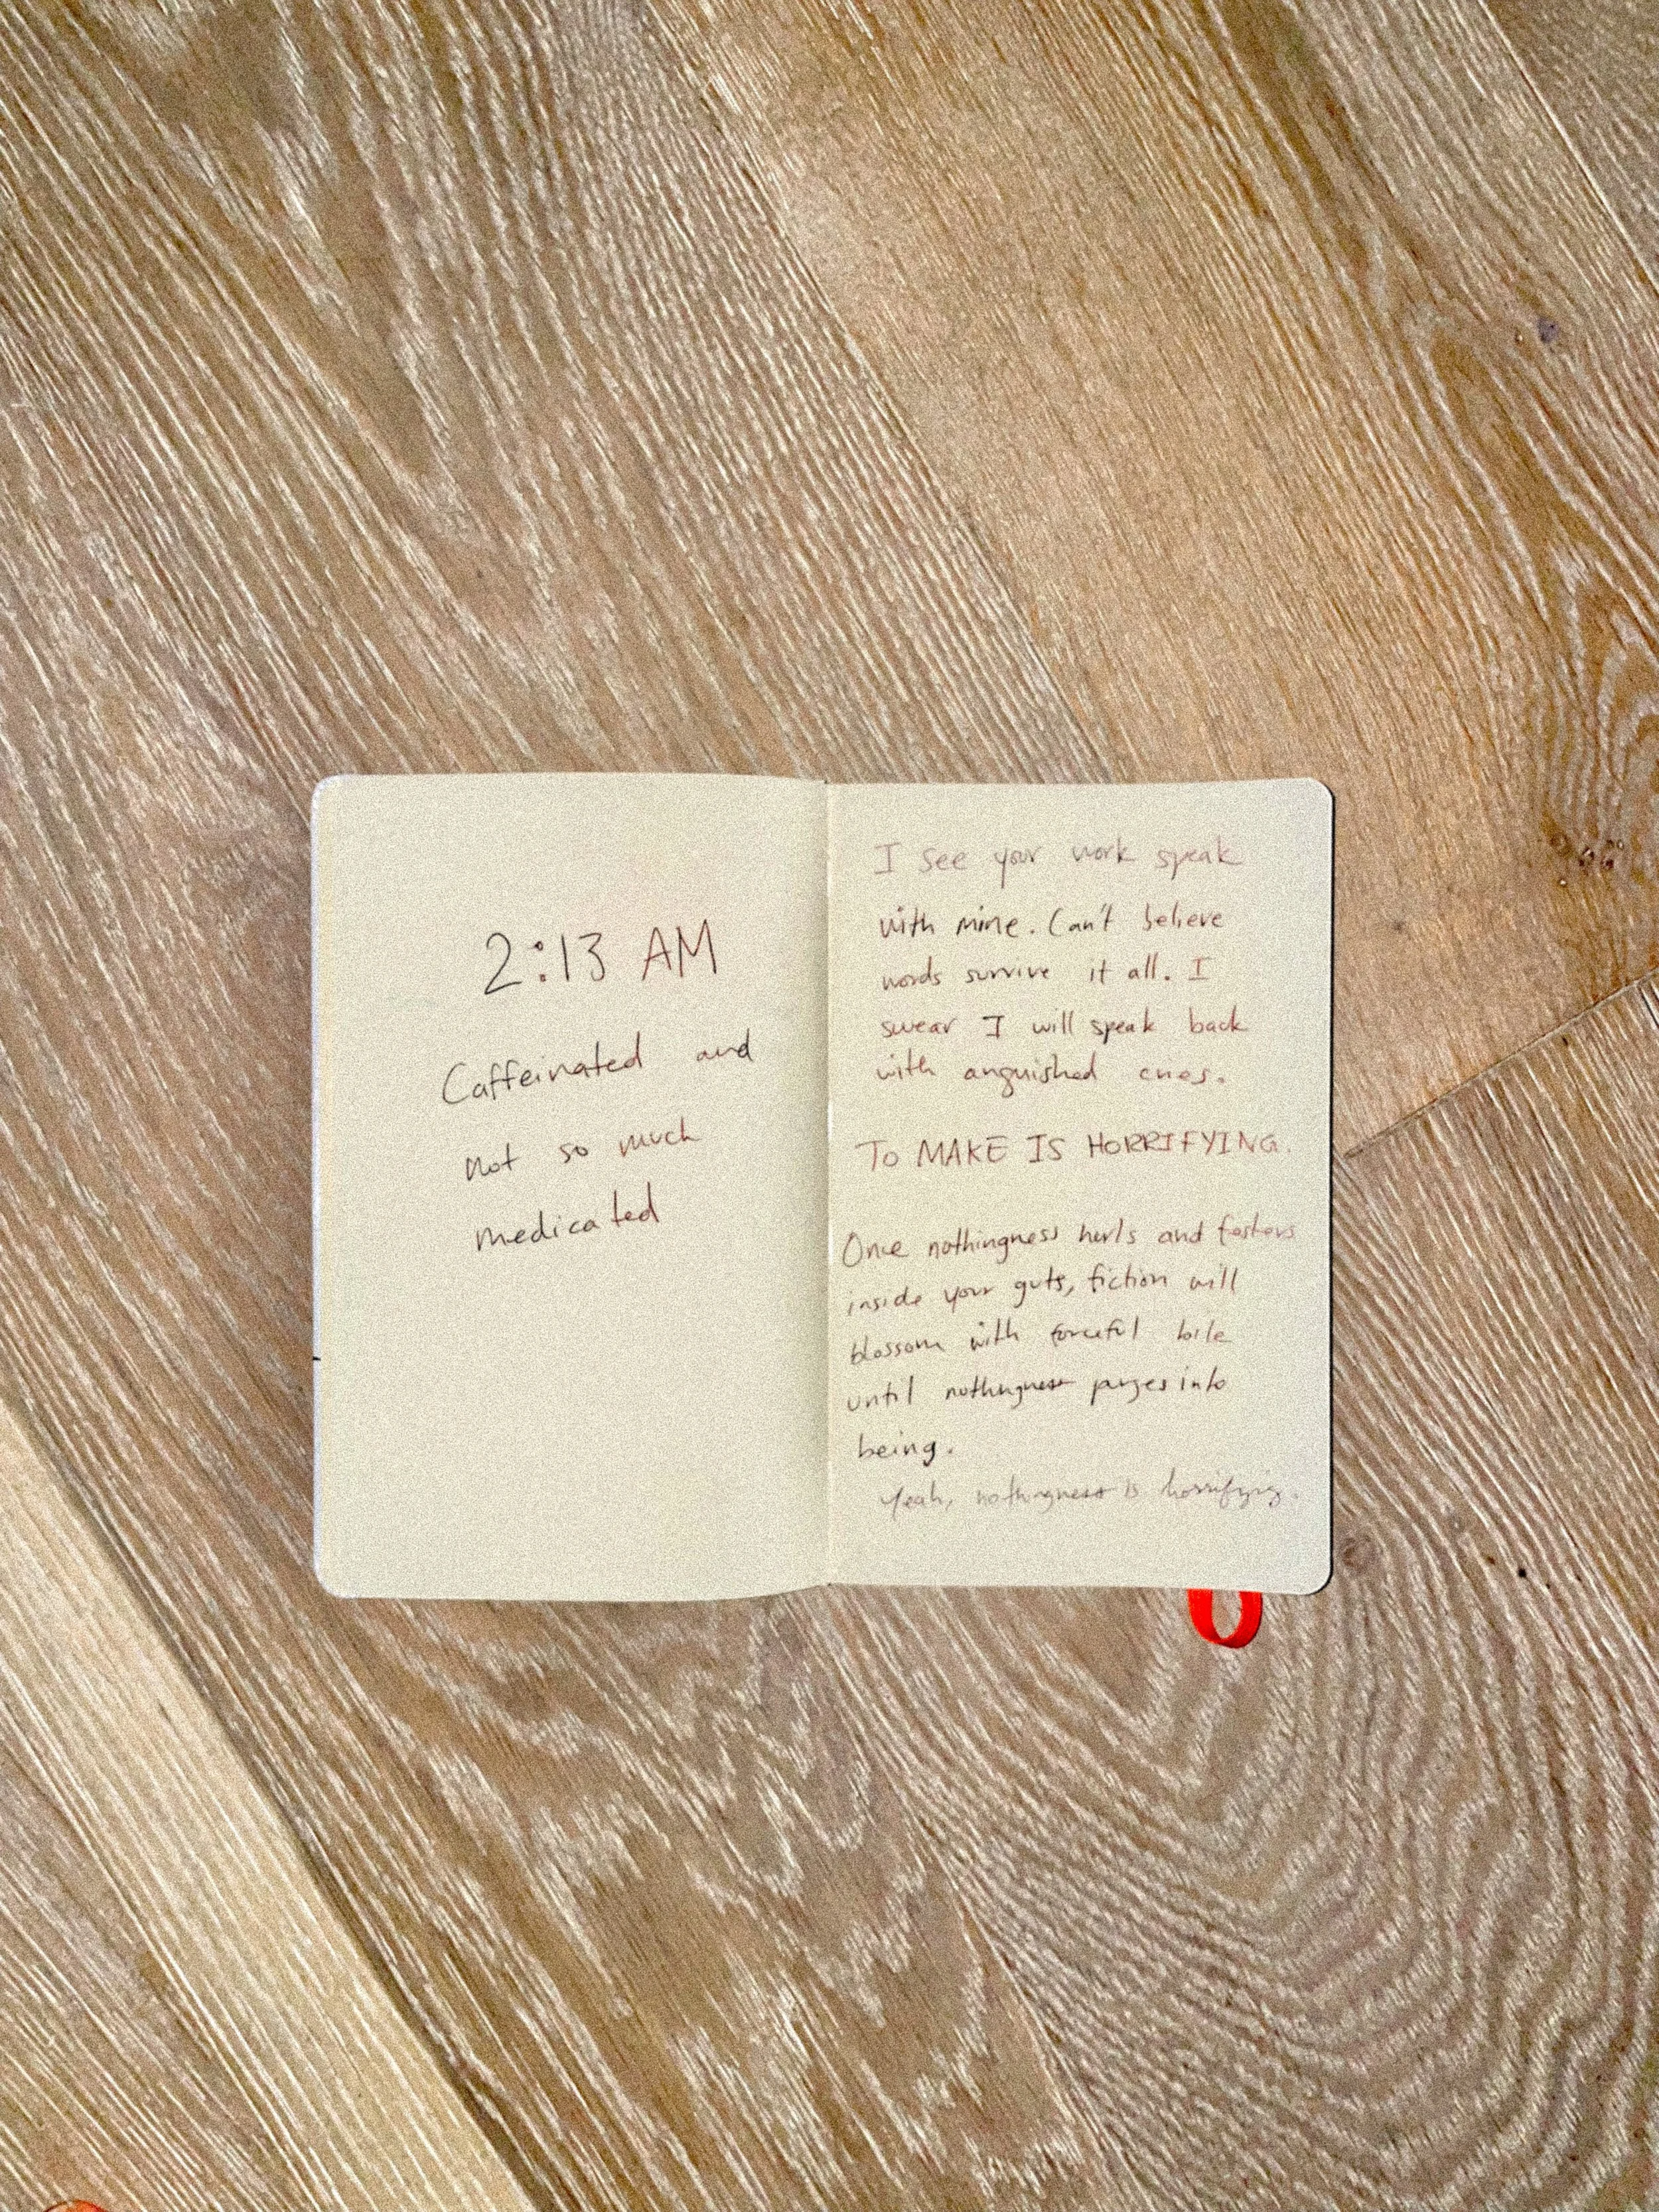 2:13 AM
Caffeinated and
not so much
medicated
I see your work speak
with mine. Can't believe
words survive it all. I
swear I will speak back
with anguished ones.
TO MAKE IS HORRIFYING.
Once nothingness hurls and festers
inside your guts, fiction will
blossom with forceful bile
until nothingness purges into
being.
Yeah, nothingness is horrifying.